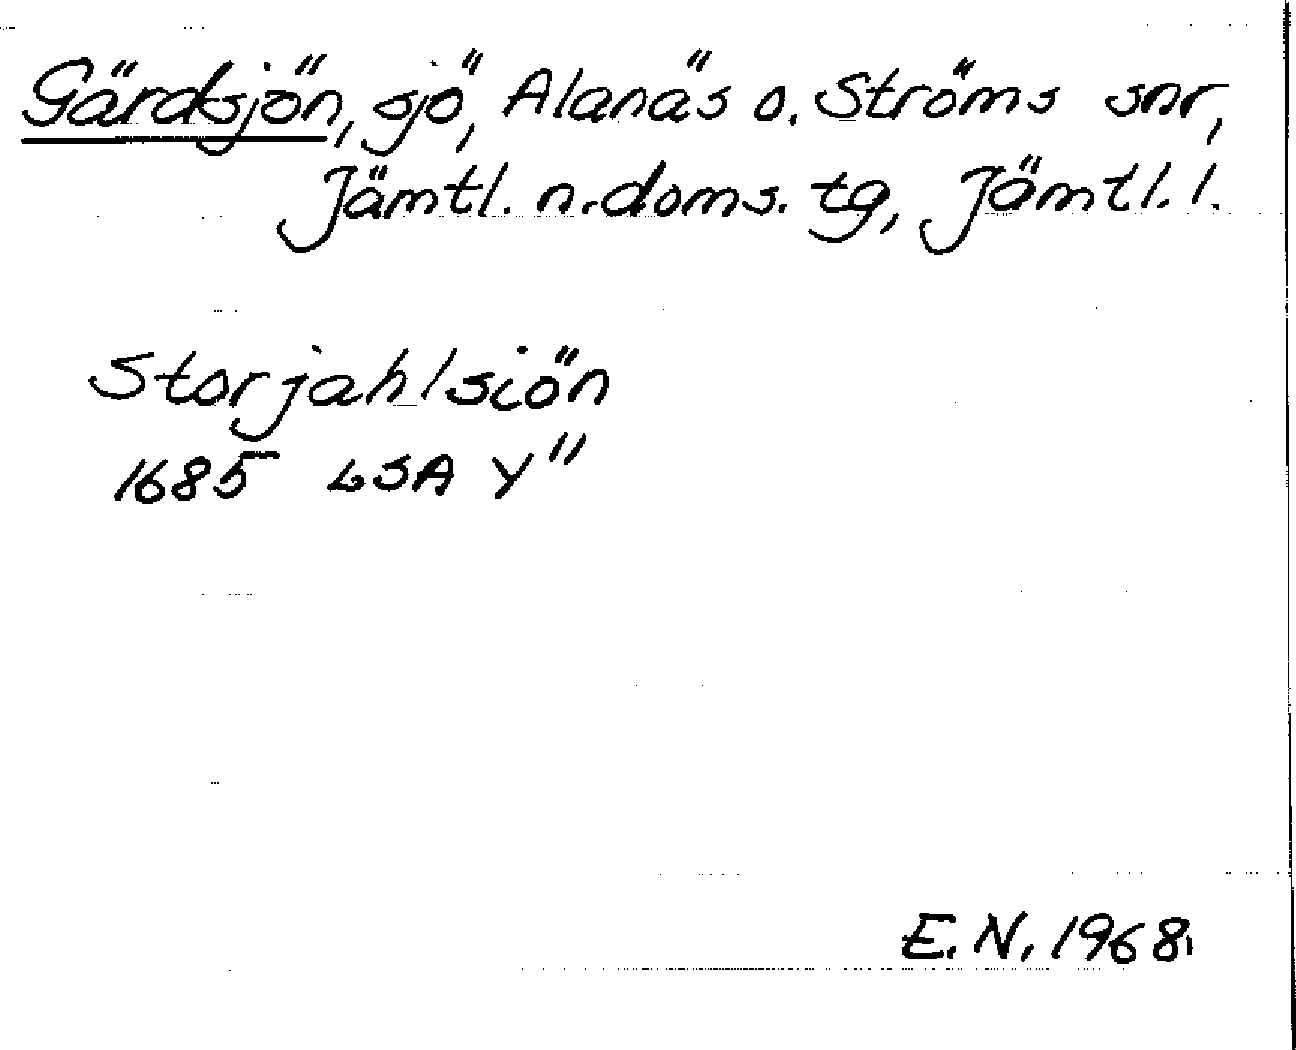 Gärdsjön, sjö, Alanäs o. Ströms snr,
Jämtl. n. doms. tg, Jämtl. l.
Storjahlsiön
1685 LSA Y"
E. N. 1968